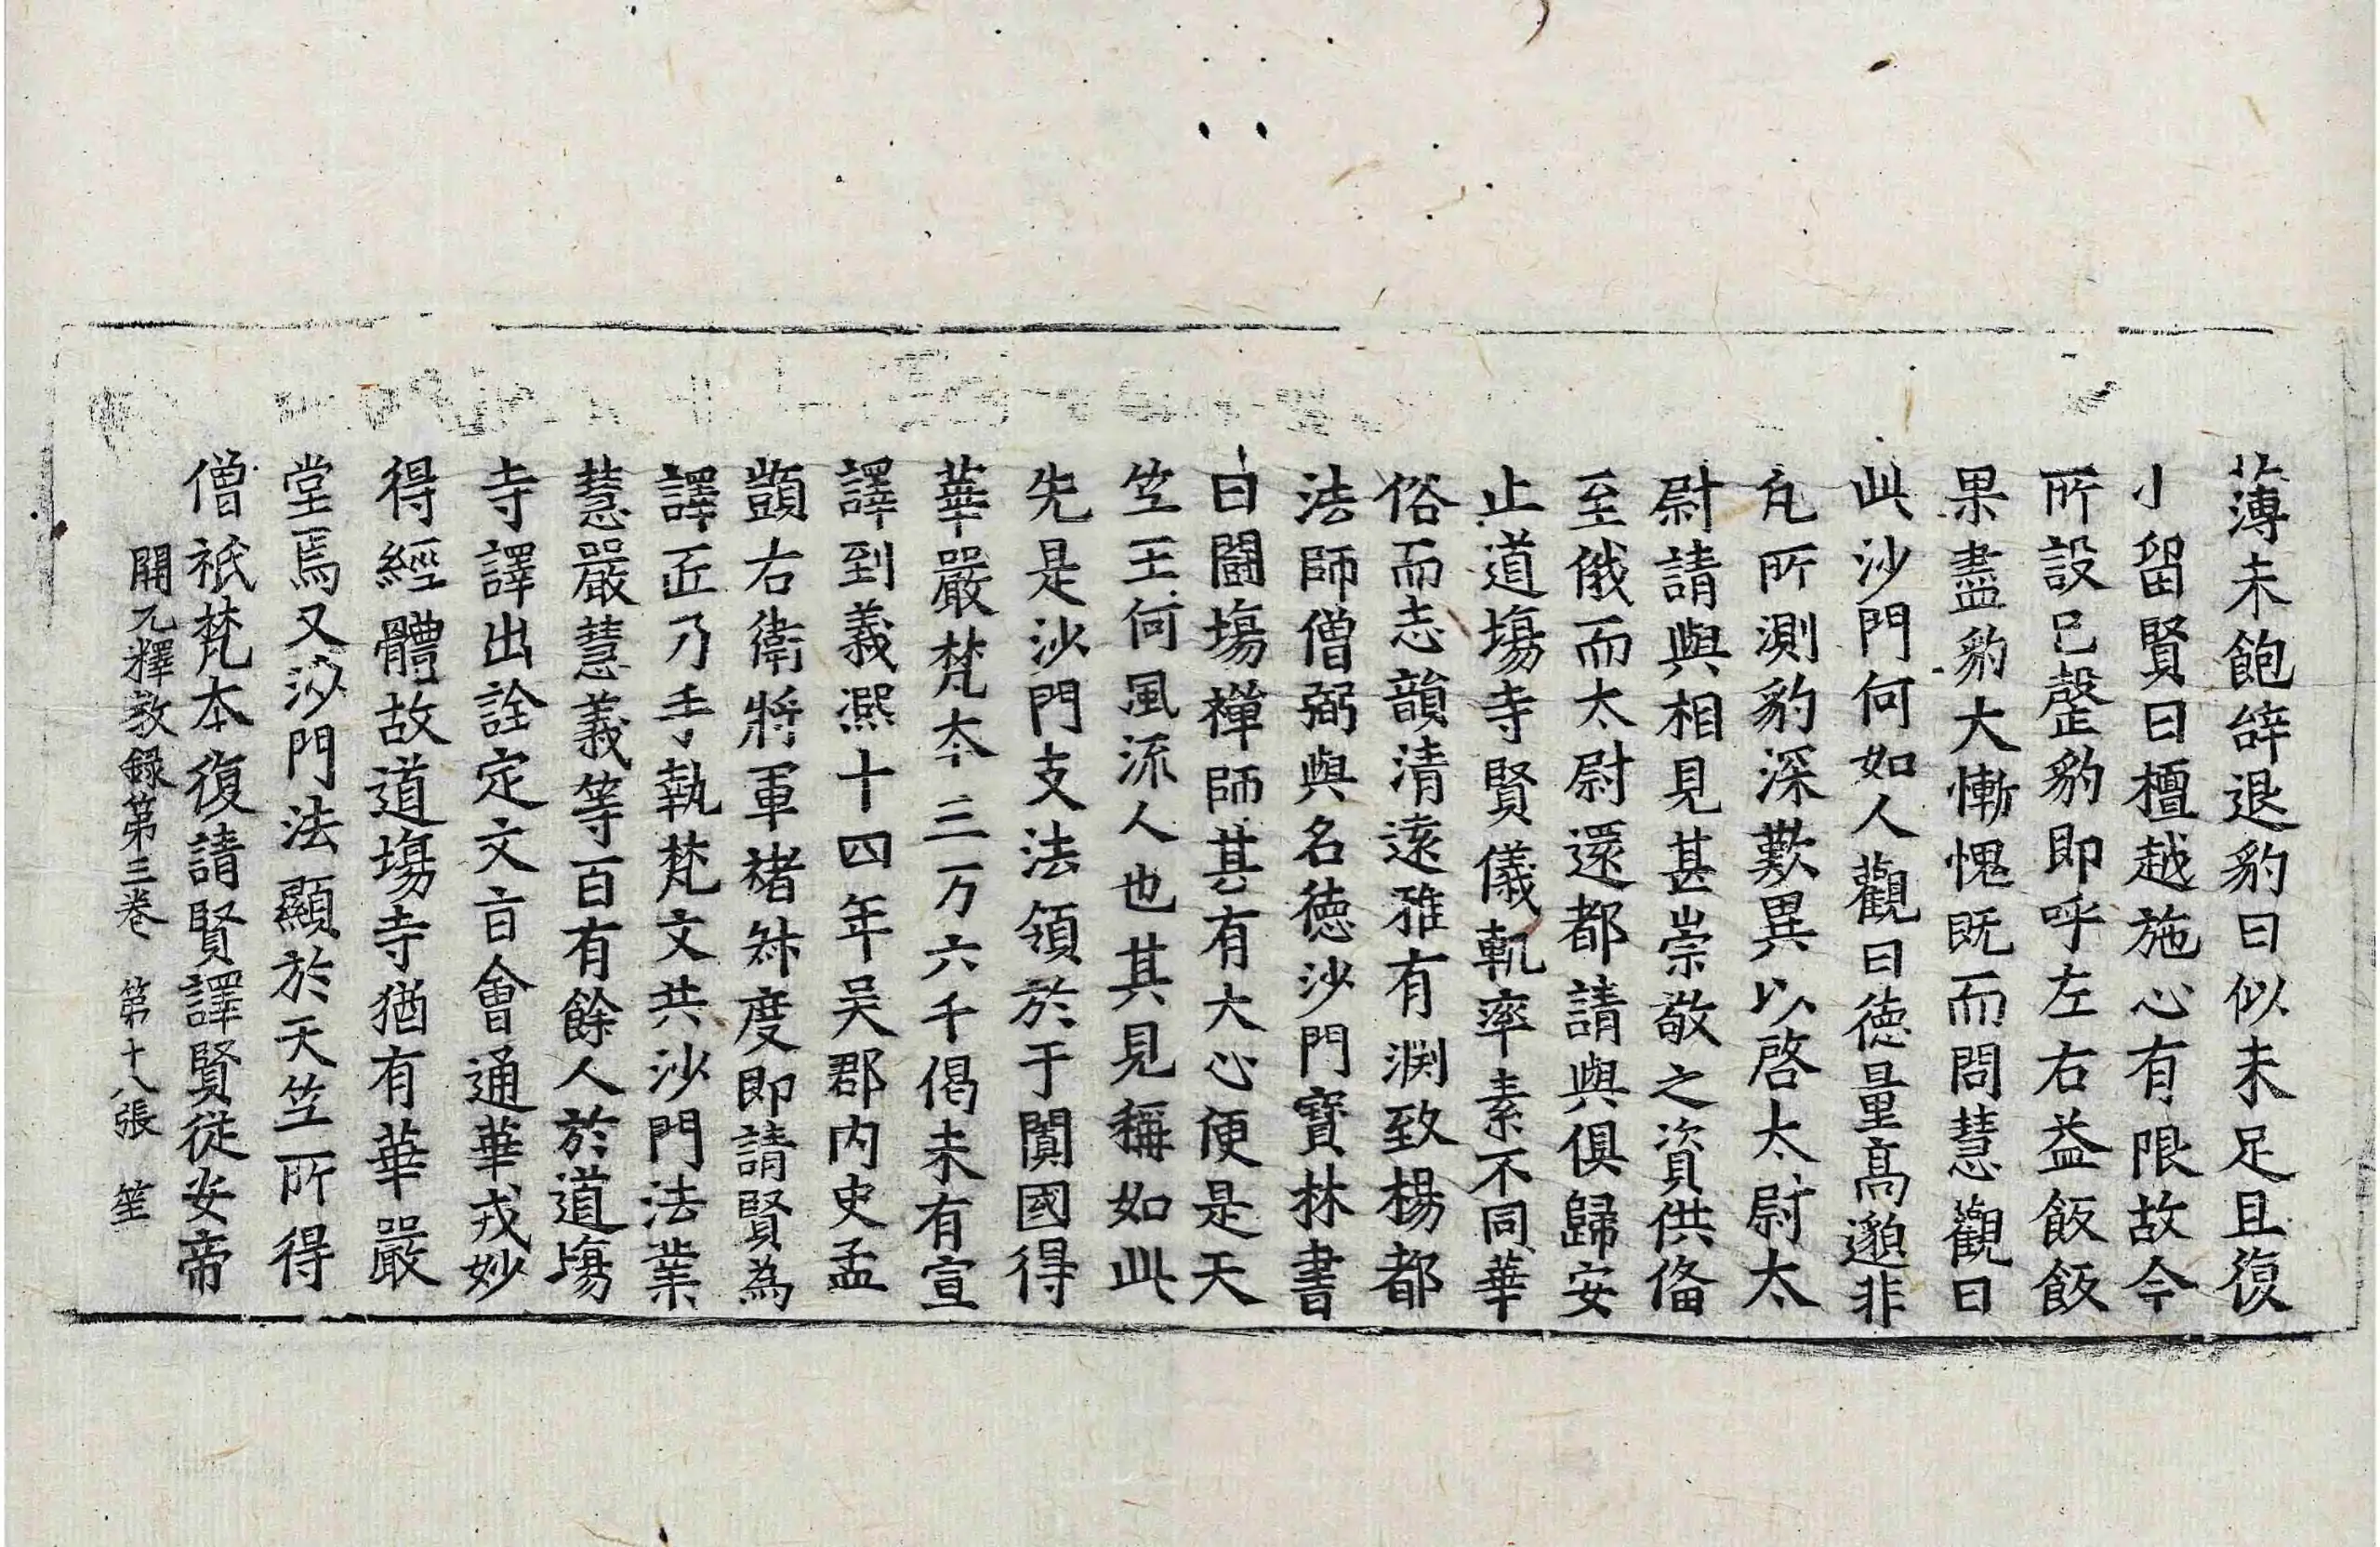 薄未飽辝退豹曰似未足且復
小留賢曰檀越施心有限故令
所設已罄豹即呼左右益飯飯
果盡豹大慚愧既而問慧觀曰
此沙門何如人觀曰德量高邈非
凢所測豹深歎異以啓太尉太
尉請與相見甚崇敬之資供俻
至俄而太尉還都請與俱歸安
止道場寺賢儀軌率素不同華
俗而志韻清遠雅有淵致楊都
法師僧弼與名德沙門寶林書
曰鬪場禪師甚有大心便是天
竺王何風流人也其見稱如此
先是沙門支法領於于闐國得
華嚴梵夲三万六千偈未有宣
譯到義熈十四年吴郡内史孟
顗右衛將軍禇叔度即請賢為
譯匠乃手執梵文共沙門法業
慧嚴慧義等百有餘人於道場
寺譯出詮定文㫖會通華戎妙
得經體故道場寺猶有華嚴
堂焉又沙門法顯於天竺所得
僧祇梵本復請賢譯賢從安帝
開元釋教録第三卷　第十八張　笙